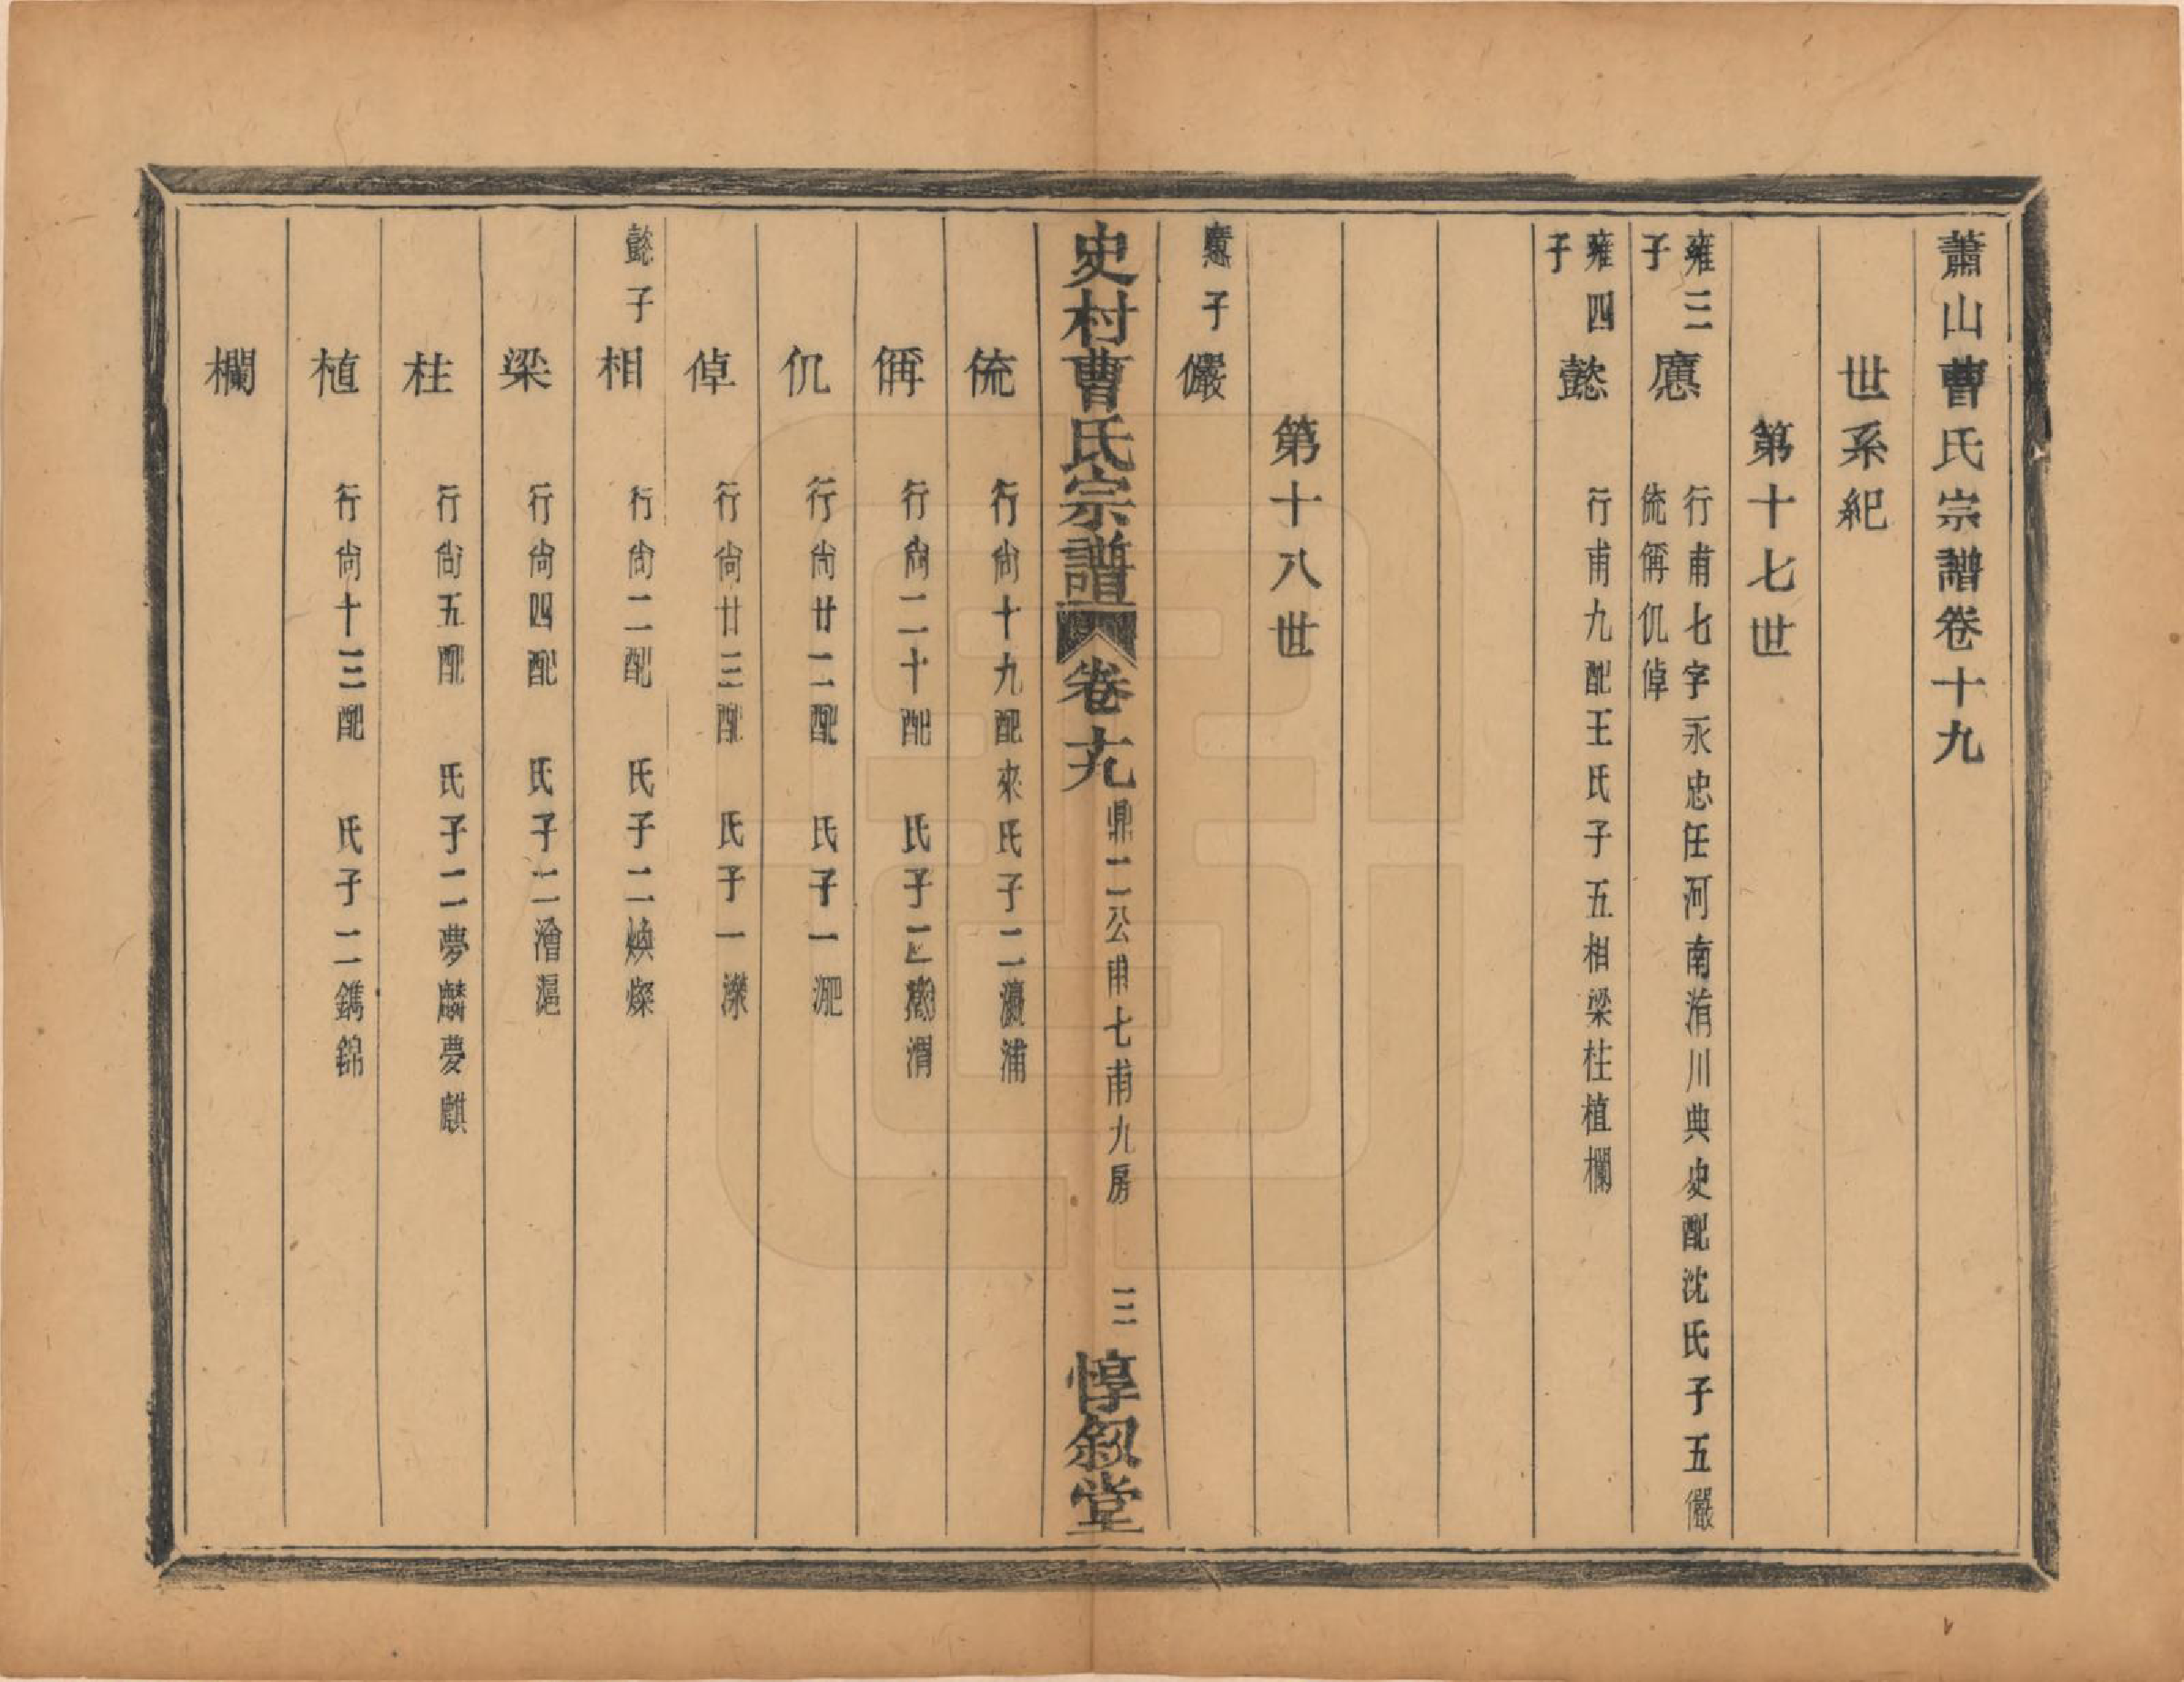 蕭山曹氏宗譜卷十九
世系紀
第十七世
雍三子 應 行甫七字永忠任河南洧川典史配沈氏子五儼
㐬偁仉倬
雍四子 懿 行甫九配王氏子五相梁柱植欄
第十八世
應子 儼
史村曹氏宗譜 卷十九 鼎二公甫七甫九房 三 惇叙堂
行尚十九配來氏子二瀛浦
偁 行尚二十配 氏子二 渭
仉 行尚廿二配 氏子一淝
倬 行尚廿三配 氏子一濼
懿子 相 行尚二配 氏子二煥燦
梁 行尚四配 氏子二澮滬
柱 行尚五配 氏子二夢麟夢麒
植 行尚十三配 氏子二鐫錦
欄